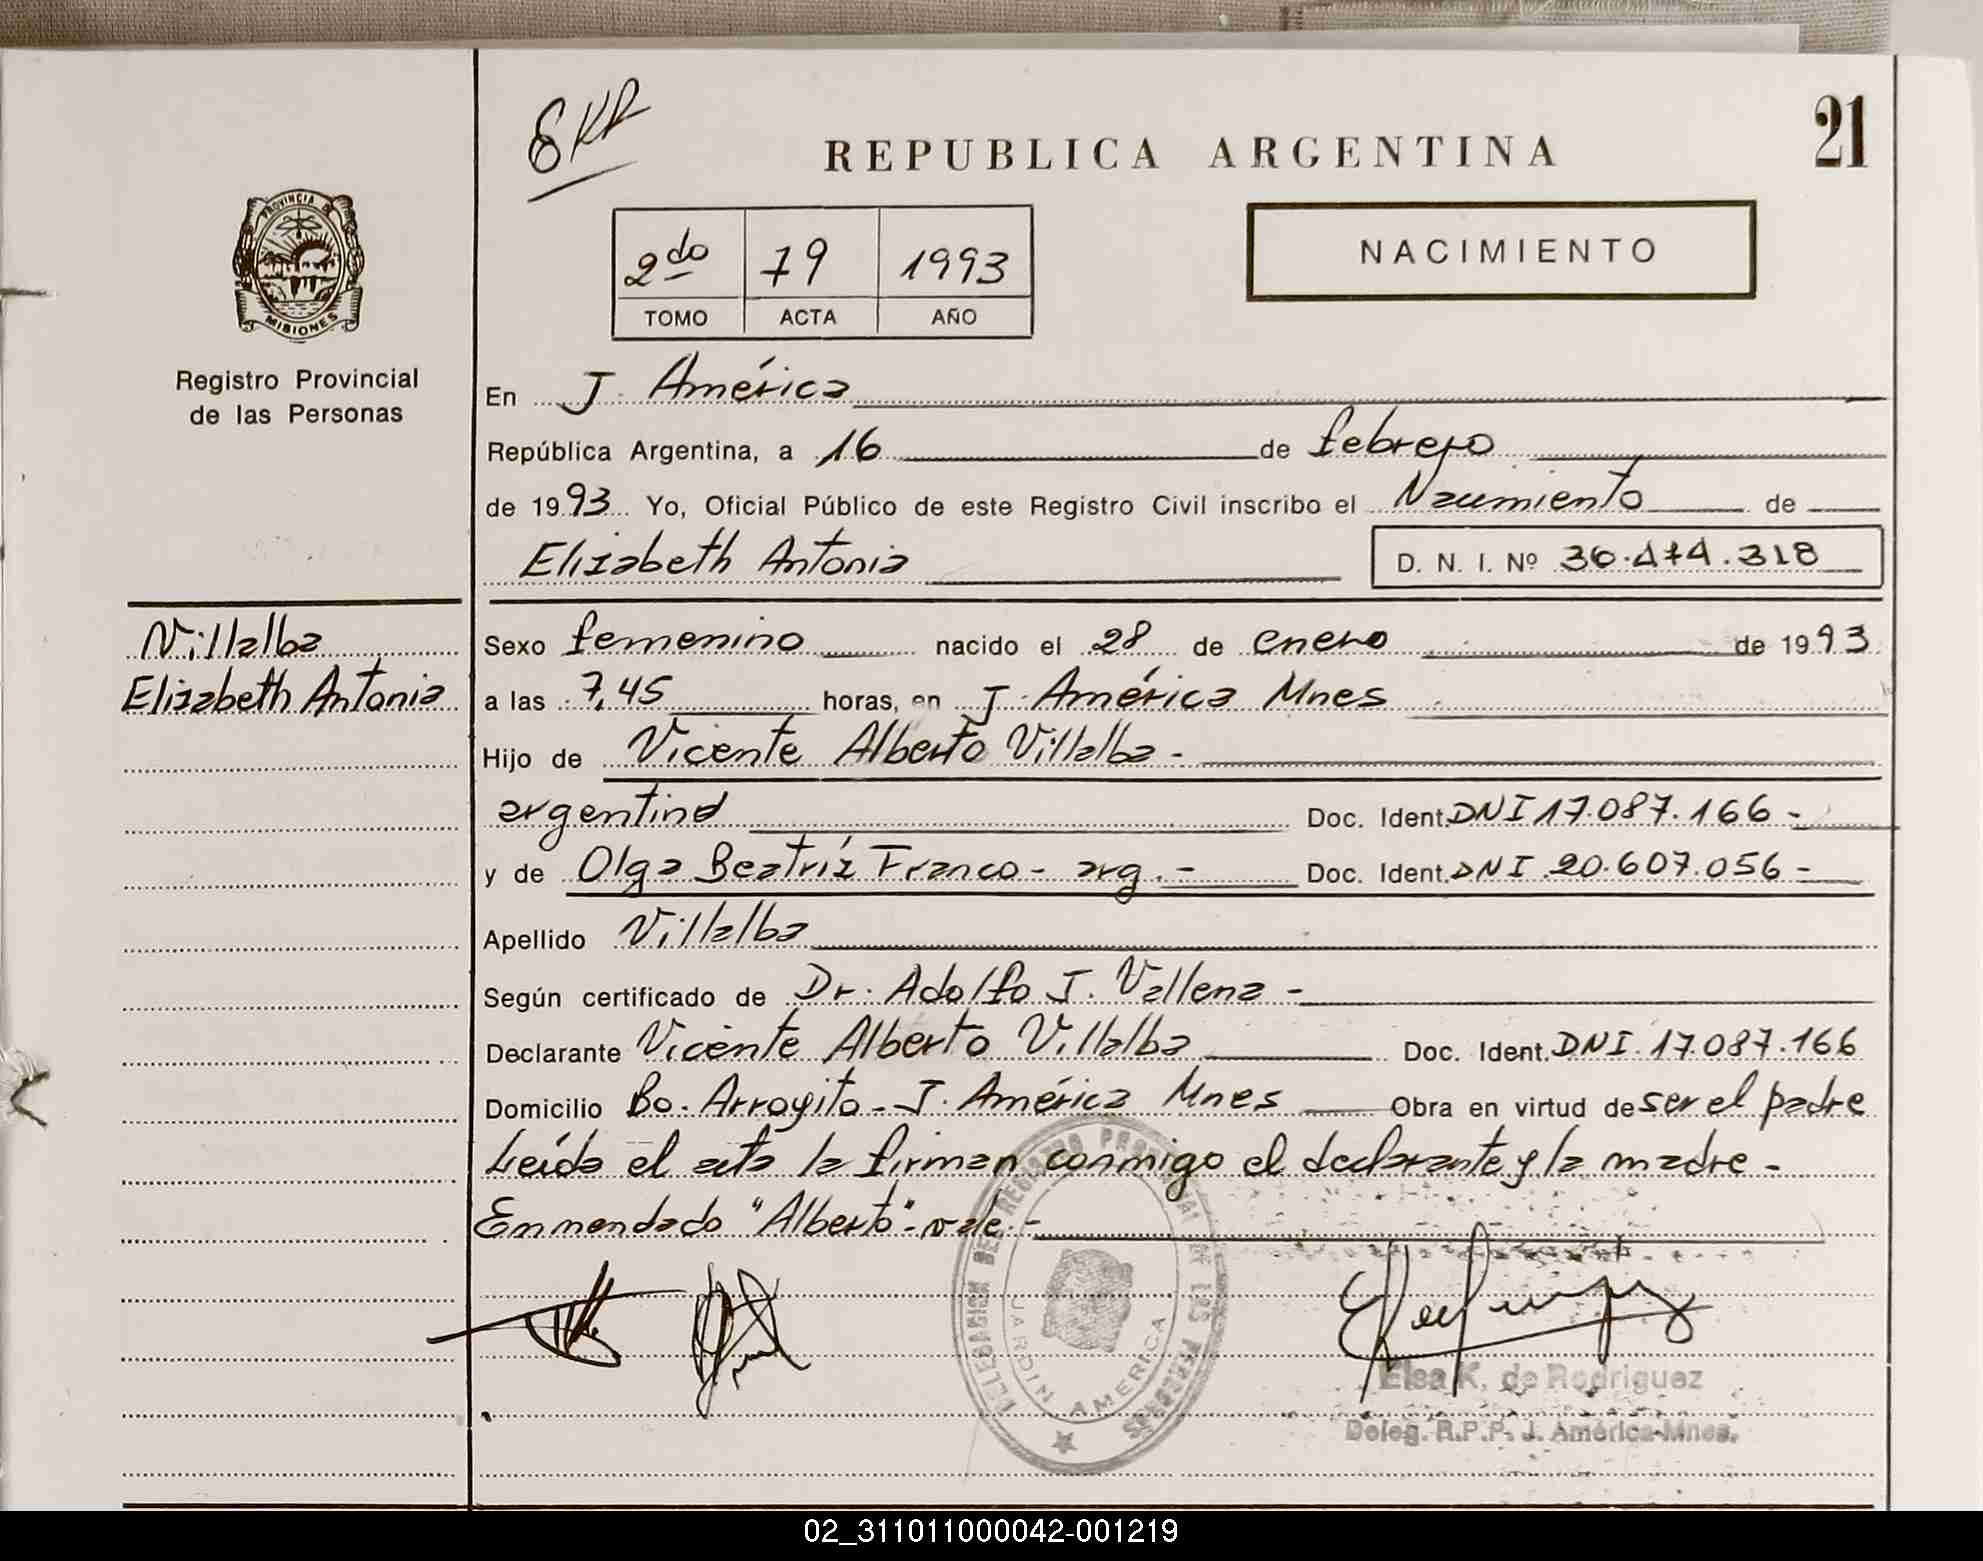 8KR
REPUBLICA ARGENTINA
21
PROVINCIA DE
MISIONES
2do 79 1993
TOMO ACTA AÑO
NACIMIENTO
Registro Provincial
de las Personas
En J. América
República Argentina, a 16 de febrero
de 1993 Yo, Oficial Público de este Registro Civil inscribo el Nacimiento de
Elizabeth Antonia D. N. I. Nº 36.474.318
Villalba
Elizabeth Antonia
Sexo femenino nacido el 28 de enero de 1993
a las 7,45 horas, en J. América Mnes
Hijo de Vicente Alberto Villalba -
argentino Doc. Ident. DNI 17.087.166 -
y de Olga Beatríz Franco - arg. - Doc. Ident. DNI 20.607.056 -
Apellido Villalba
Según certificado de Dr. Adolfo J. Vallena -
Declarante Vicente Alberto Villalba Doc. Ident. DNI 17.087.166
Domicilio Bo. Arroyito - J. América Mnes Obra en virtud de ser el padre
Leída el acta la firman conmigo el declarante y la madre -
Enmendado "Alberto" - vale. -
DELEGACION DEL REGISTRO PROVINCIAL DE LAS PERSONAS
JARDIN AMERICA
Elsa K. de Rodriguez
Deleg. R.P.P. J. América-Mnes.
02_311011000042-001219